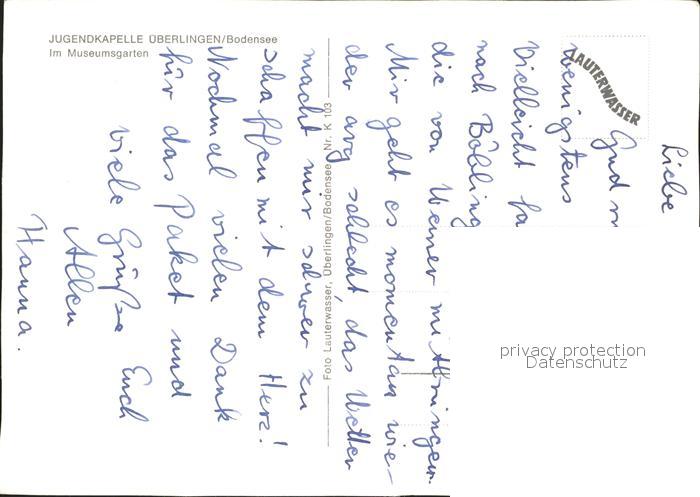 JUGENDKAPELLE ÜBERLINGEN/Bodensee
Im Museumsgarten
LAUTERWASSER
Foto Lauterwasser, Überlingen/Bodensee Nr. K 103
Liebe
wenigstens
Vielleicht fa
nach Böbling
die von Werner mitbringen.
Mir geht es momentan wie-
der arg schlecht, das Wetter
macht mir schwer zu
schaffen mit dem Herz!
Nochmal vielen Dank
für das Paket und
viele Grüße Euch
Allen
Hanna.
privacy protection
Datenschutz